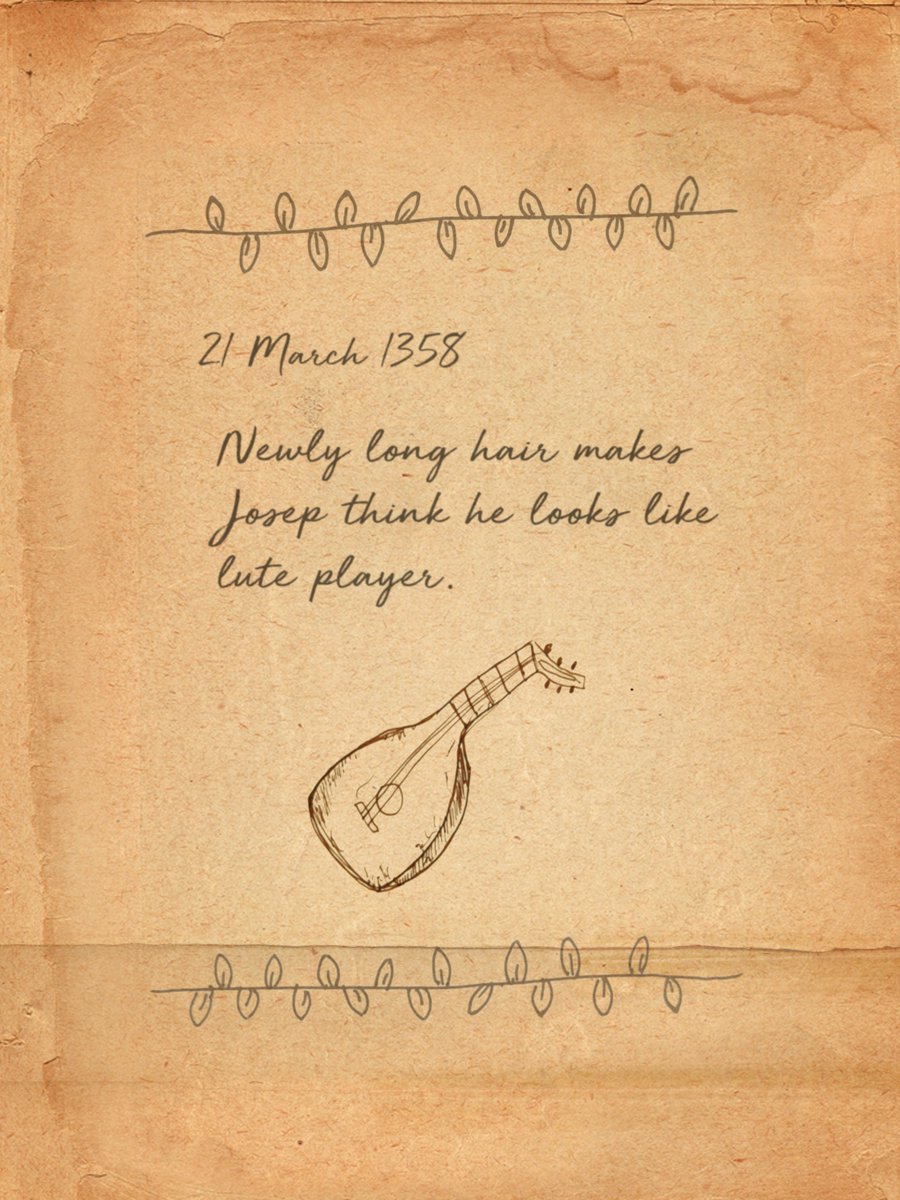 21 March 1358
Newly long hair makes
Josep think he looks like
lute player.